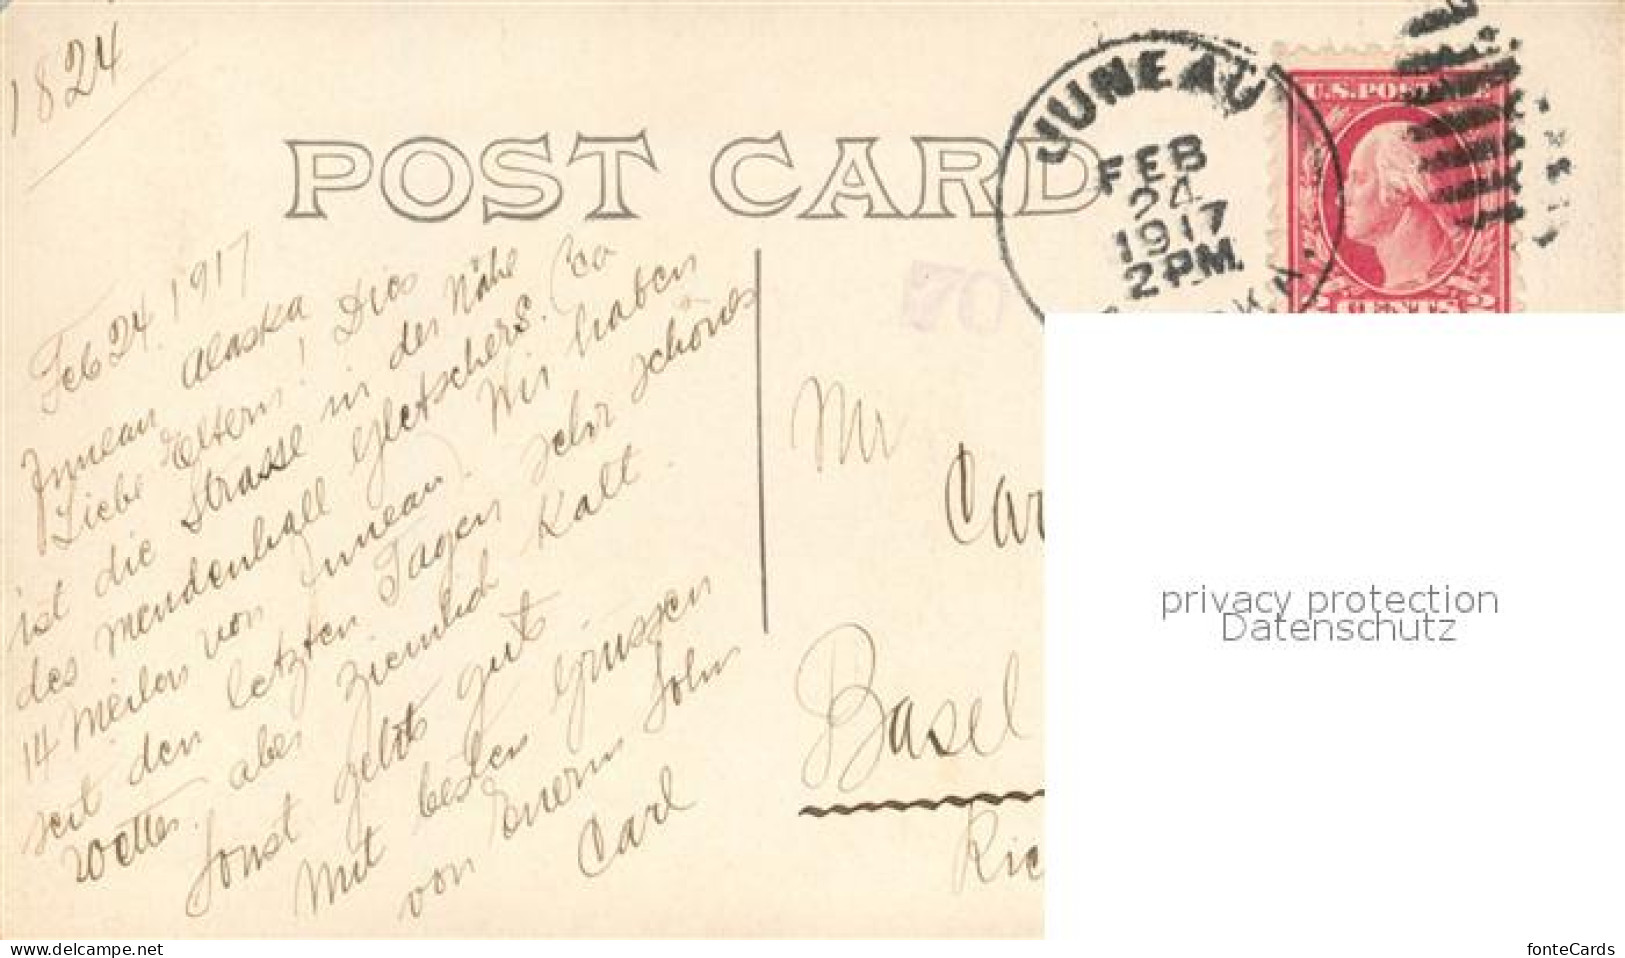 1824
POST CARD
JUNEAU
FEB
24
1917
2 PM.
U.S. POSTAGE
2 CENTS 2
70
Feb 24. 1917
Juneau Alaska
Liebe Eltern! Dies
ist die Strasse in der Nähe
des Mendenhall Gletschers. (ca
14 Meilen von Juneau. Wir haben
seit den letzten Tagen sehr schönes
Wetter. aber ziemlich Kalt.
Sonst gehts gut.
Mit besten Grüssen
von Euerm Sohn
Carl
Mr
Car
Basel
Ric
privacy protection
Datenschutz
www.delcampe.net
fonteCards